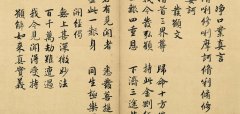 淨口業真言
唎修唎摩訶修唎修修
發願文
稽首三界尊 歸命十方
我今發弘願 持此金剛
上報四重恩 下濟三途
若有見聞者 悉發菩提
盡此一報身 同生極樂
開經偈
無上甚深微妙法
百千萬劫難遭遇
我今見聞得受持
願解如來真實義